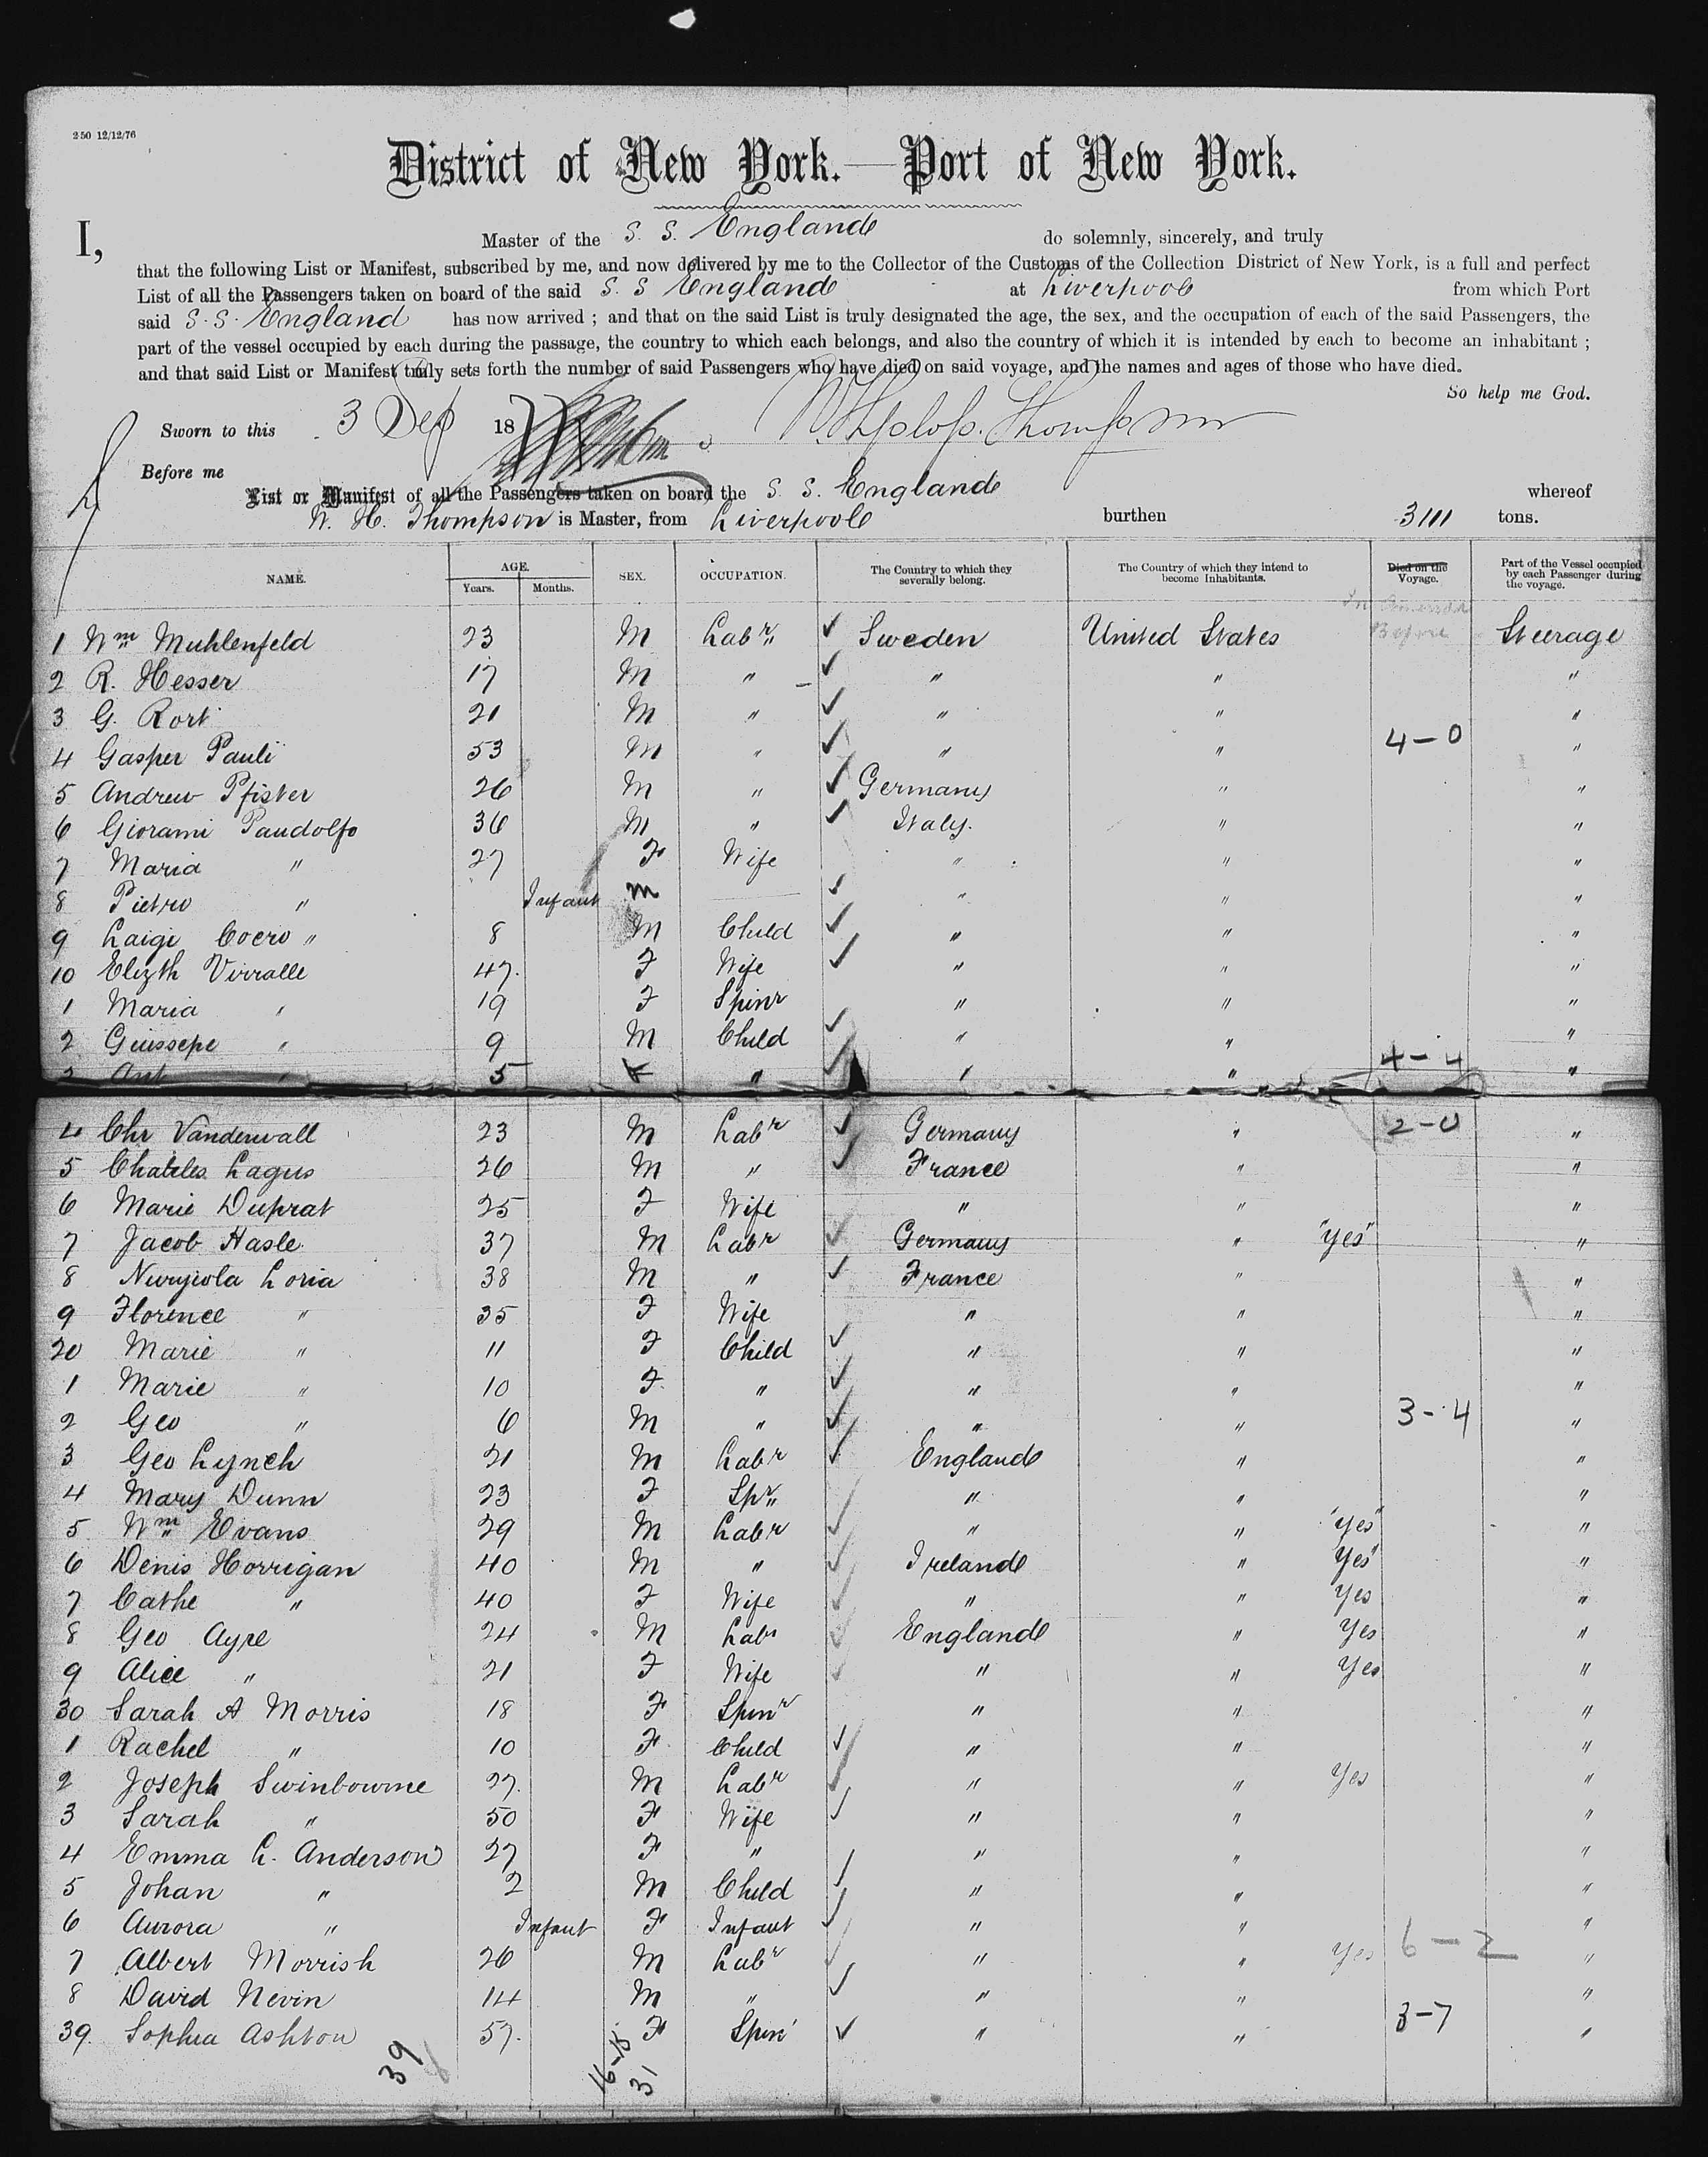 250 12/12/76
District of New York.—Port of New York.
I, Master of the S. S. England do solemnly, sincerely, and truly
that the following List or Manifest, subscribed by me, and now delivered by me to the Collector of the Customs of the Collection District of New York, is a full and perfect
List of all the Passengers taken on board of the said S. S England at Liverpool from which Port
said S. S. England has now arrived ; and that on the said List is truly designated the age, the sex, and the occupation of each of the said Passengers, the
part of the vessel occupied by each during the passage, the country to which each belongs, and also the country of which it is intended by each to become an inhabitant ;
and that said List or Manifest truly sets forth the number of said Passengers who have died on said voyage, and the names and ages of those who have died.
So help me God.
Sworn to this 3 Dec 18 Thompson
Before me
List or Manifest of all the Passengers taken on board the S. S. England whereof
W. H. Thompson is Master, from Liverpool burthen 3111 tons.
NAME. AGE. Years. Months. SEX. OCCUPATION. The Country to which they severally belong. The Country of which they intend to become Inhabitants. Died on the Voyage. Part of the Vessel occupied by each Passenger during the voyage.
In America Before
1 Wm Muhlenfeld 23 M Labr Sweden United States Steerage
2 R. Hesser 17 M " " " "
3 G. Rort 21 M " " " "
4 Gasper Pauli 53 M " " " 4-0 "
5 Andrew Pfister 26 M " Germany " "
6 Giorami Paudolfo 36 M " Italy. " "
7 Maria " 27 F Wife " " "
8 Pietro " Infant M " " "
9 Laigi Cocro " 8 M Child " " "
10 Elizth Virralle 47. F Wife " " "
1 Maria " 19 F Spinr " " "
2 Giussepe " 9 M Child " " "
3 Ant " 5 " " " 4-4 "
4 Chr Vanderwall 23 M Labr Germany " 2-0 "
5 Charles Lagus 26 M " France " "
6 Marie Duprat 25 F Wife " " "
7 Jacob Hasle 37 M Labr Germany " "Yes" "
8 Loria 38 M " France " "
9 Florence " 35 F Wife " " "
20 Marie " 11 F Child " " "
1 Marie " 10 F " " " "
2 Geo " 6 M " " " 3-4 "
3 Geo Lynch 21 M Labr England " "
4 Mary Dunn 23 F Spr " " "
5 Wm Evans 29 M Labr " " "Yes" "
6 Denis Horrigan 40 M " Ireland " Yes" "
7 Cathe " 40 F Wife " " Yes "
8 Geo Ayre 24 M Labr England " Yes "
9 Alice " 21 F Wife " " Yes "
30 Sarah A Morris 18 F Spinr " " "
1 Rachel " 10 F Child " " "
2 Joseph Swinbourne 27. M Labr " " Yes "
3 Sarah " 50 F Wife " " "
4 Emma L. Anderson 27 F " " " "
5 Johan " 2 M Child " " "
6 Aurora " Infant F Infant " " "
7 Albert Morrish 26 M Labr " " Yes 6-2 "
8 David Nevin 14 M " " " "
39. Sophia Ashton 57. F Spinr " " 3-7 "
39 16-15 31